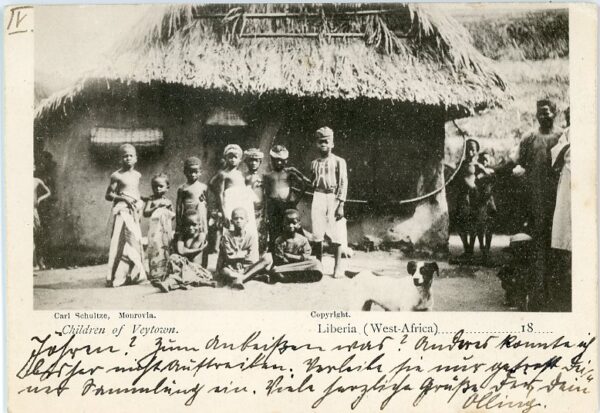 IV
Carl Schultze, Monrovia.
Copyright.
Children of Veytown.
Liberia (West-Africa) 18
Föhren? Zum Anbeißen was? Anderes konnte ich
bisher nicht Auftreiben. Verleibe sie nur getrost Dei-
ner Sammlung ein. Viele herzliche Grüße Der Dein
Olling.